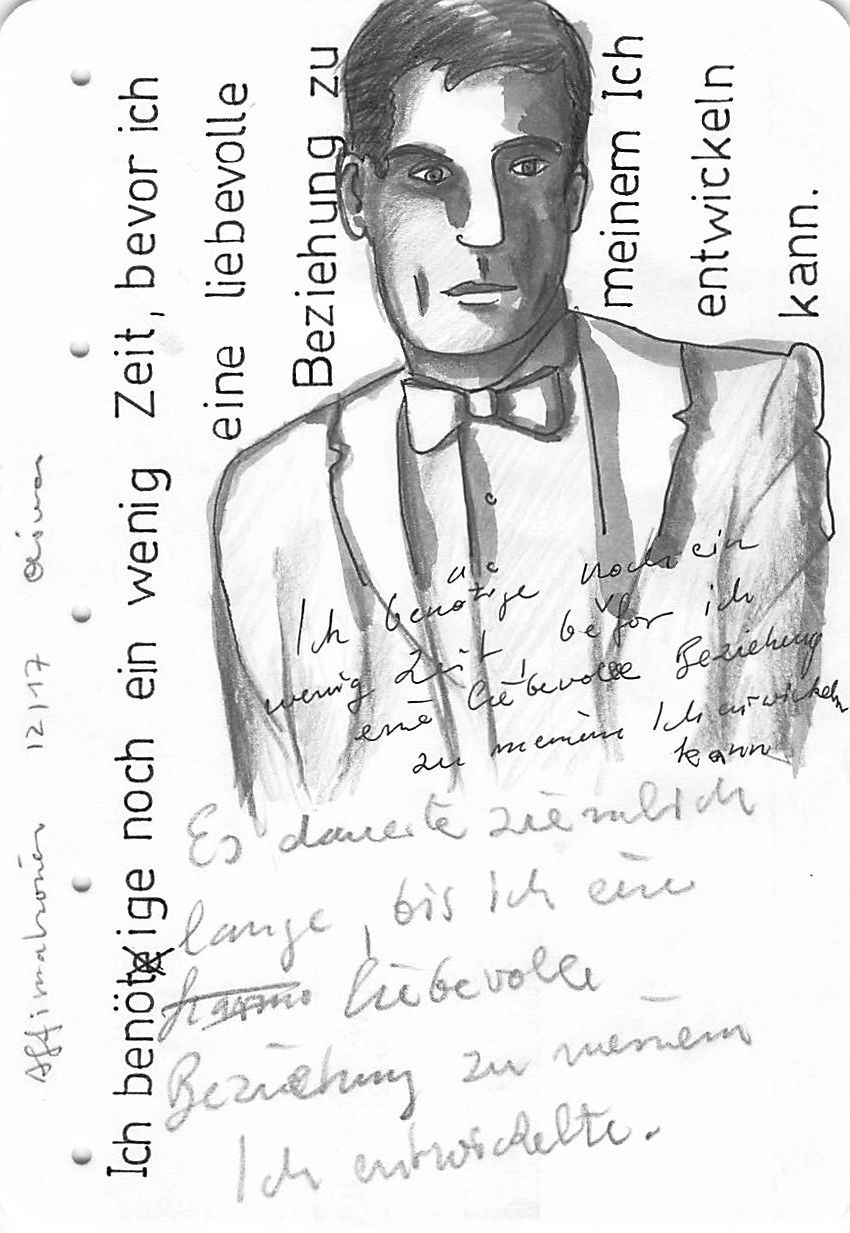 Affirmationen 12/17
Ich benötige noch ein wenig Zeit, bevor ich
eine liebevolle
Beziehung zu
meinem Ich
entwickeln
kann.
Ich benötige noch ein
wenig Zeit, befor ich
eine liebevolle Beziehung
zu meinem Ich entwickeln
kann
Es dauerte ziemlich
lange, bis ich eine
harmo liebevolle
Beziehung zu meinem
Ich entwickelte.